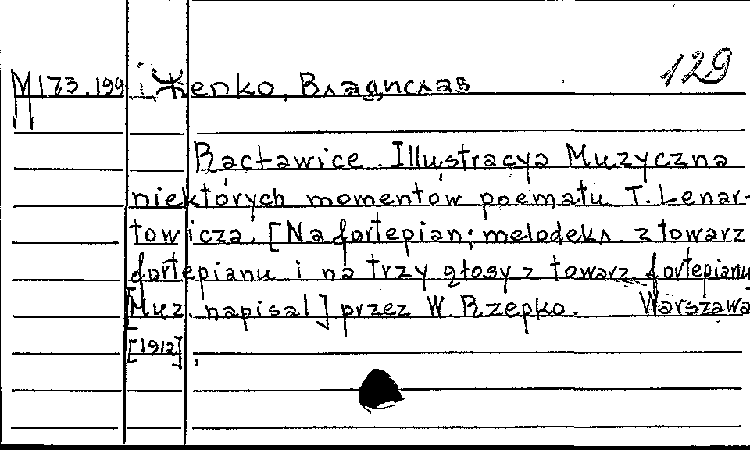 129
M 173.199 Жепко, Владислав
Racławice. Illustracya Muzyczna
niektórych momentów poematu T. Lenar-
towicza. [Na fortepian; melodekl z towarz
fortepianu i na trzy głosy z towarz fortepianu
Muz. napisal] przez W. Rzepko. Warszawa
[1912].